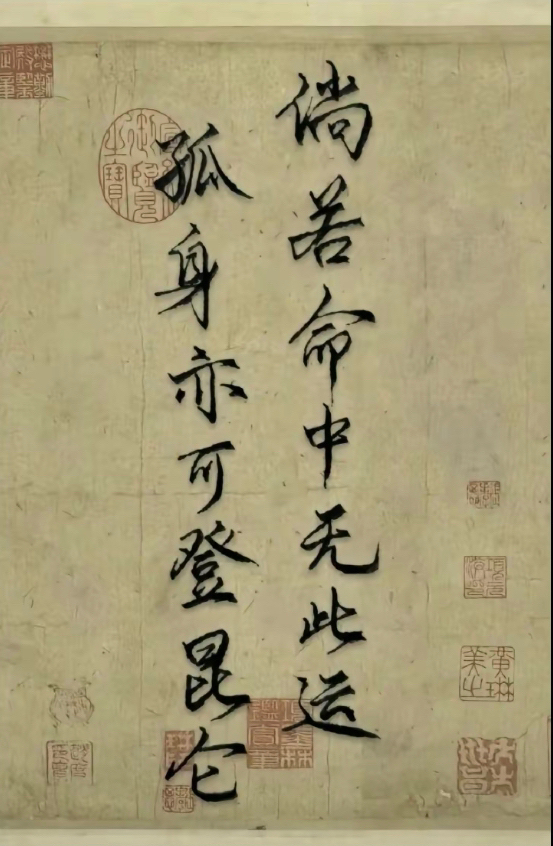 倘若命中无此运
孤身亦可登昆仑